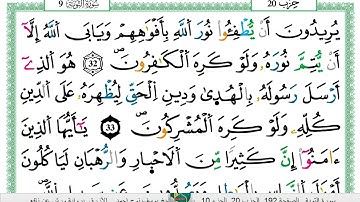 حزب 20 سورة التوبة 9
يُرِيدُونَ أَنْ يُّطْفِـُٔوا نُورَ اَ۬للَّهِ بِأَفْوَٰهِهِمْ وَيَأْبَي اَ۬للَّهُ إِلَّآ
أَنْ يُّتِمَّ نُورَهُۥ وَلَوْ كَرِهَ اَ۬لْكَٰفِرُونَ 32 هُوَ اَ۬لذِےٓ
أَرْسَلَ رَسُولَهُۥ بِالْهُد۪يٰ وَدِينِ اِ۬لْحَقِّ لِيُظْهِرَهُۥ عَلَي اَ۬لدِّينِ
كُلِّهِۦ وَلَوْ كَرِهَ اَ۬لْمُشْرِكُونَ 33 يَٰٓأَيُّهَا اَ۬لذِينَ
ءَامَنُوٓاْ إِنَّ كَثِيراٗ مِّنَ اَ۬لَاحْبِارِ وَالرُّهْبَانِ لَيَاكُلُونَ
الصفحة 192 الحزب 20 الجزء 10